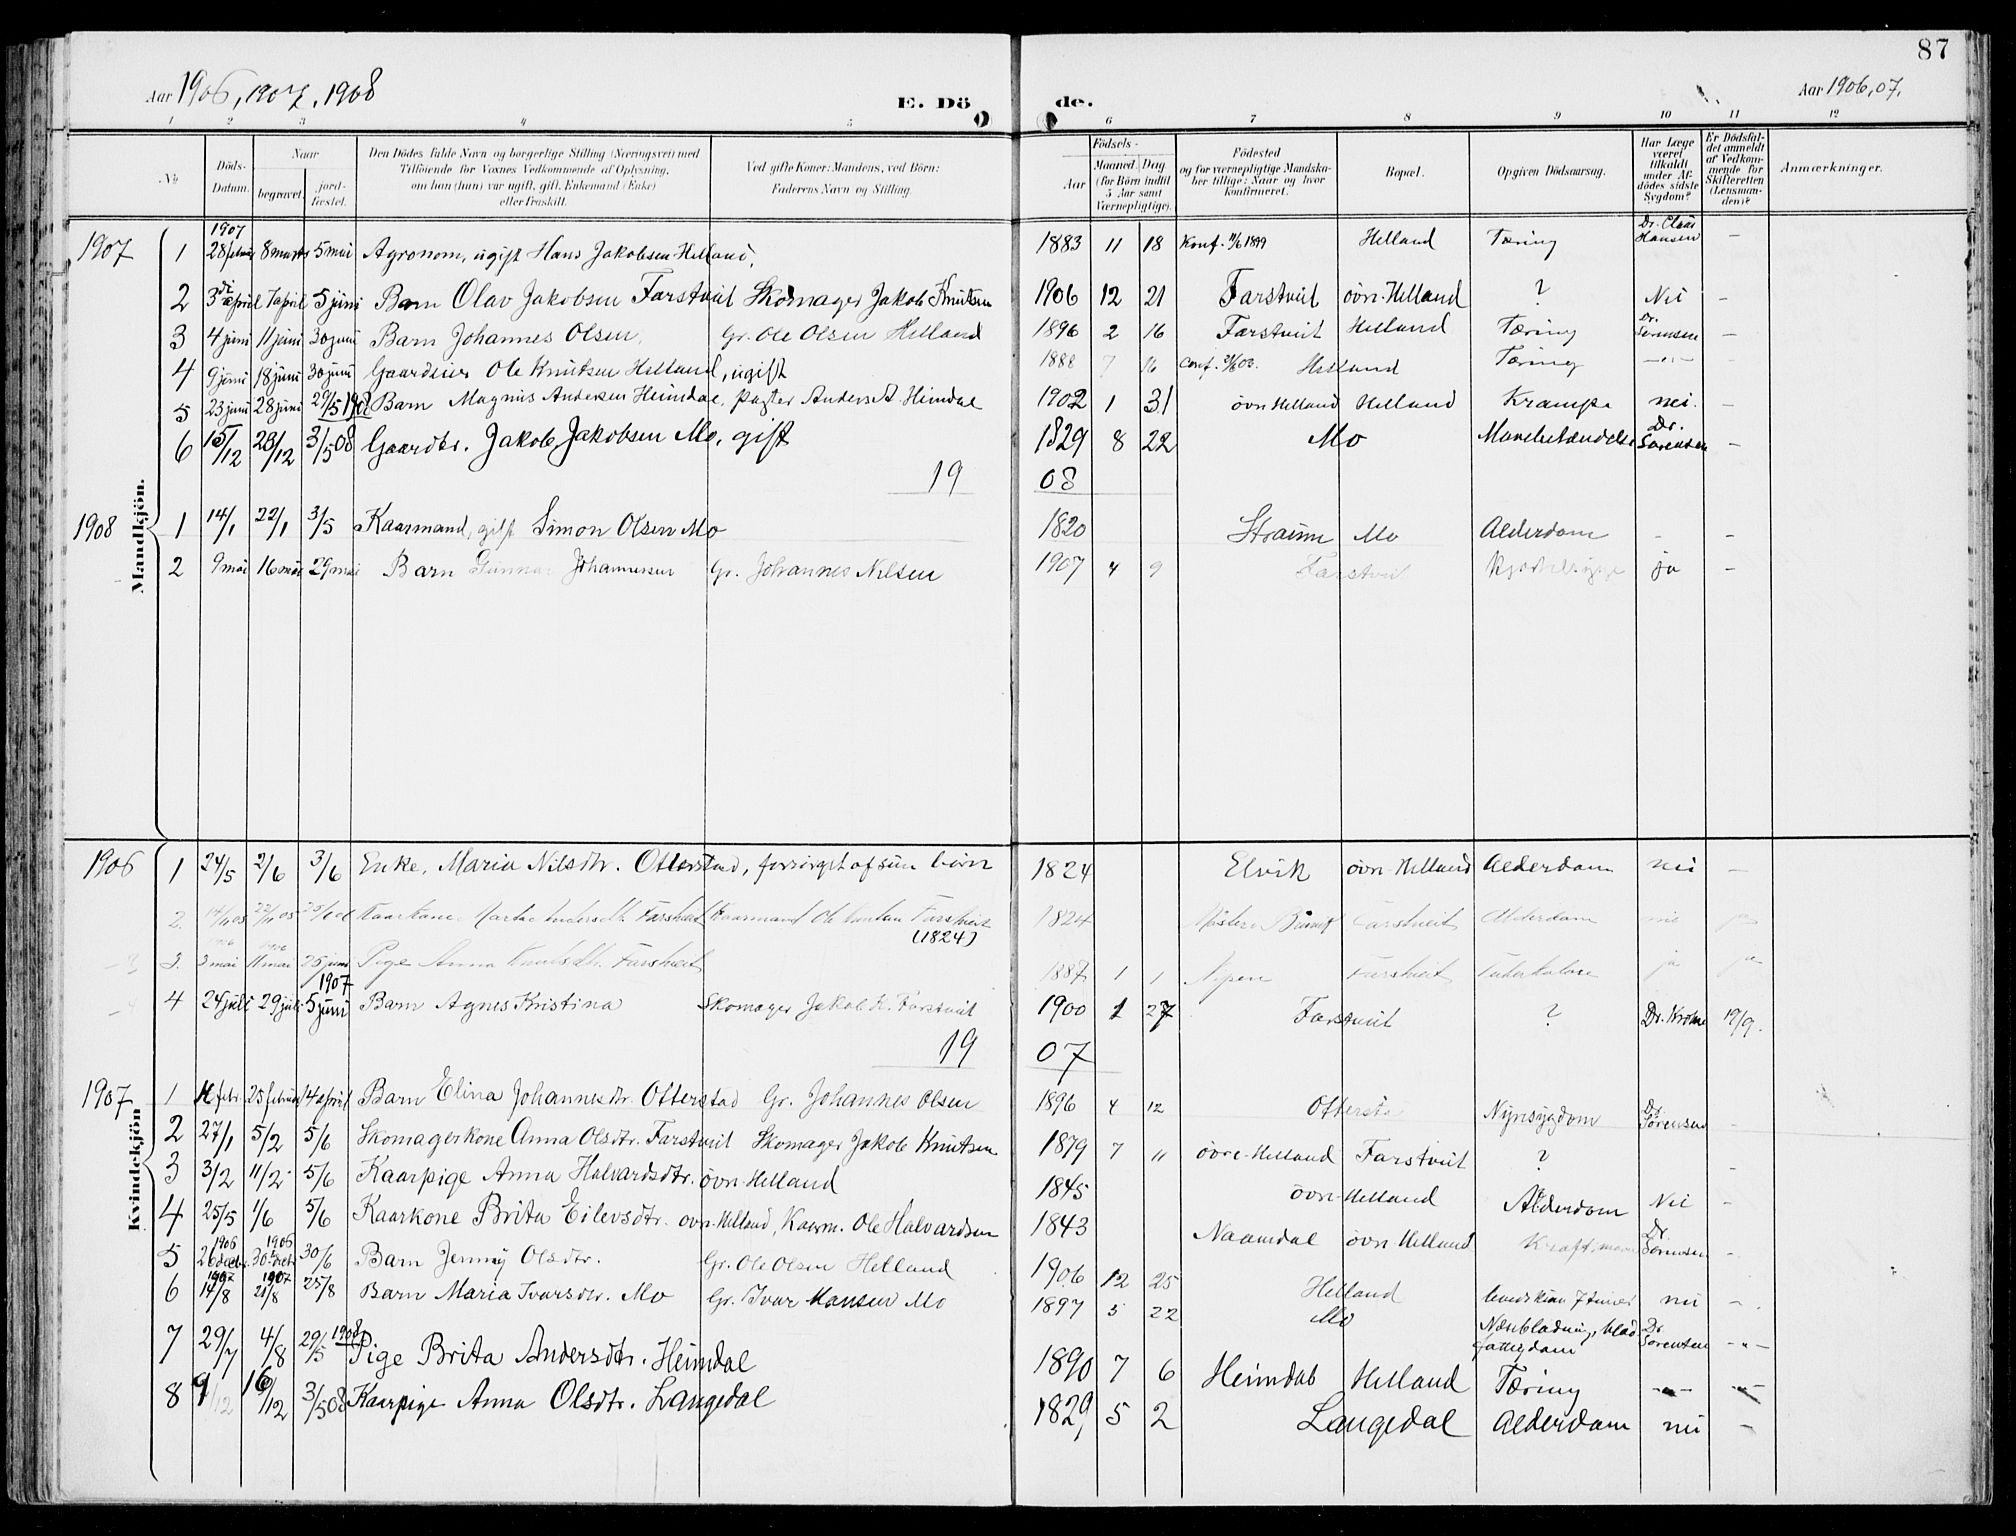 87
Aar 1906, 1907, 1908 E. Dö de. Aar 1906,07,
1 2 3 4 5 6 7 8 9 10 11 12
No Döds-Datum. Naar begravet. jordfæstet. Den Dödes fulde Navn og borgerlige Stilling (Næringsvei) med Tilföiende for Voxnes Vedkommende af Oplysning, om han (hun) var ugift, gift, Enkemand (Enke) eller fraskilt. Ved gifte Koner: Mandens, ved Börn: Faderens Navn og Stilling. Födsels- Aar Maaned. Dag (for Börn indtil 5 Aar samt Værnepligtige). Födested og for værnepligtige Mandskaber tillige: Naar og hvor konfirmeret. Bopæl. Opgiven Dödsaarsag. Har Læge været tilkaldt under Afdödes sidste Sygdom? Er Dödsfaldet anmeldt af Vedkommende for Skifteretten (Lensmanden)? Anmærkninger.
Mandkjön.
1907 1 1907 28 februar 8 marts 5 mai Agronom, ugift Hans Jakobsen Helland, 1883 11 18 Konf. 1899 Helland Tæring Dr. Claus Hansen –
2 3die april 7 april 5 juni Barn Olav Jakobsen Farstveit Skomager Jakob Knutsen 1906 12 21 Farstveit övr. Helland ? Nei –
3 4 juni 11 juni 30 juni Barn Johannes Olsen, Gr. Ole Olsen Helland 1896 2 16 Farstveit Helland Tæring Dr. Sörensen –
4 9 juni 18 juni 30 juni Gaardeier Ole Knutsen Helland, ugift 1888 7 16 Conf. Helland Tæring –"–
5 23 juni 28 juni 29/5 1908 Barn Magnus Andersen Heimdal, Pagter Anders A. Heimdal 1902 1 31 övr. Helland Helland Krampe nei. –
6 15/12 23/12 3/5 08 Gaardbr. Jakob Jakobsen Mo, gift 1829 8 22 Mo Mavebetændelse Dr. Sörensen –
19 08
1908 1 14/1 22/1 3/5 Kaarmand, gift Simon Olsen Mo 1820 Straume Mo Alderdom – –
2 9 mai 16 mai 29 mai Barn Gunnar Johannessen Gr. Johannes Nilsen 1907 4 9 Farstveit ja –
Kvindekjön
1906 1 24/5 2/6 3/6 Enke, Maria Nilsdtr. Otterstad, forsörget af sine börn 1824 Elvik övr. Helland Alderdom nei –
2. 14/11 05 22/11 05 Kaarkone Marta Andersdtr. Farstveit Kaarmand Ole Farstveit (1824) 1824 Farstveit Alderdom nei ja
3. 1906 3 mai 1906 11 mai 25 juni Pige Anna Knutsdtr. Farstveit 1887 1 1 Nipen Farstveit Tuberkulose ja ja
4 24 juli 29 juli 1907 5 juni Barn Agnes Kristina Skomager Jakob K. Farstveit 1900 1 27 Farstveit ? Dr. Krohn 19/9.
19 07
1907 1 febr. 25 februar 14 april Barn Elina Johannesdtr. Otterstad Gr. Johannes Olsen 1896 4 12 Ottersta Nyresygdom Dr. Sörensen
2 27/1 5/2 5/6 Skomagerkone Anna Olsdtr. Farstveit Skomager Jakob Knutsen 1879 7 11 övre-Helland Farstveit ? –
3 3/2 11/2 5/6 Kaarpige Anna Halvardsdtr. övr. Helland 1845 övr. Helland Alderdom Nei –
4 25/5 1/6 5/6 Kaarkone Brita Eilevsdtr. övr. Helland, Kaarm. Ole Halvardsen 1843 Naamdal övr. Helland Kræft Dr. Sörensen –
5 1906 26 decbr. 1906 30 decbr. 30/6 Barn Jenny Olsdtr. Gr. Ole Olsen Helland 1906 12 25 Helland levede kun 7 timer nei –
6 1907 14/8 1907 20/8 25/8 Barn Maria Ivarsdtr. Mo Gr. Ivar Hansen Mo 1897 5 22 Mo Næseblödning, blodfattigdom Dr. Sörensen –"–
7 29/7 4/8 29/5 1908 Pige Brita Andersdtr. Heimdal 1890 7 6 Heimdal Helland Tæring –"– –"–
8 9/12 16/12 3/5 08 Kaarpige Anna Olsdtr. Langedal 1829 5 2 Langedal Alderdom nei –